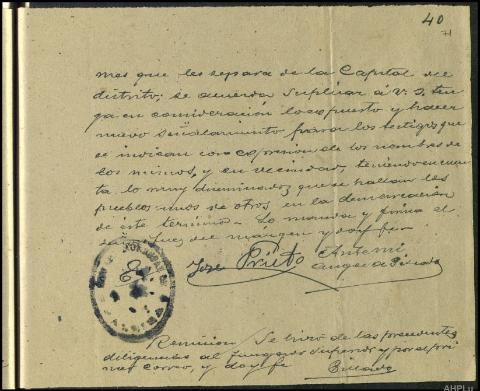 40
mas que les separa de la Capital del
distrito; se acuerda suplicar á V. S. ten
ga en consideración lo expuesto y hacer
nuevo señalamiento para los testigos que
se indican con expresion de los nombres de
los mismos, y su vecindad, teniendo en cuen
ta lo muy diseminados que se hallan los
pueblos unos de otros en la demarcación
de éste termino. Lo manda y firma el
Señor Juez del márgen y doy fe=
Jose Prieto
Antemi
Remision Se hizo de las precedentes
diligencias al Juzgado Superior y por el pri
mer correo, y doy fe
AHPLu